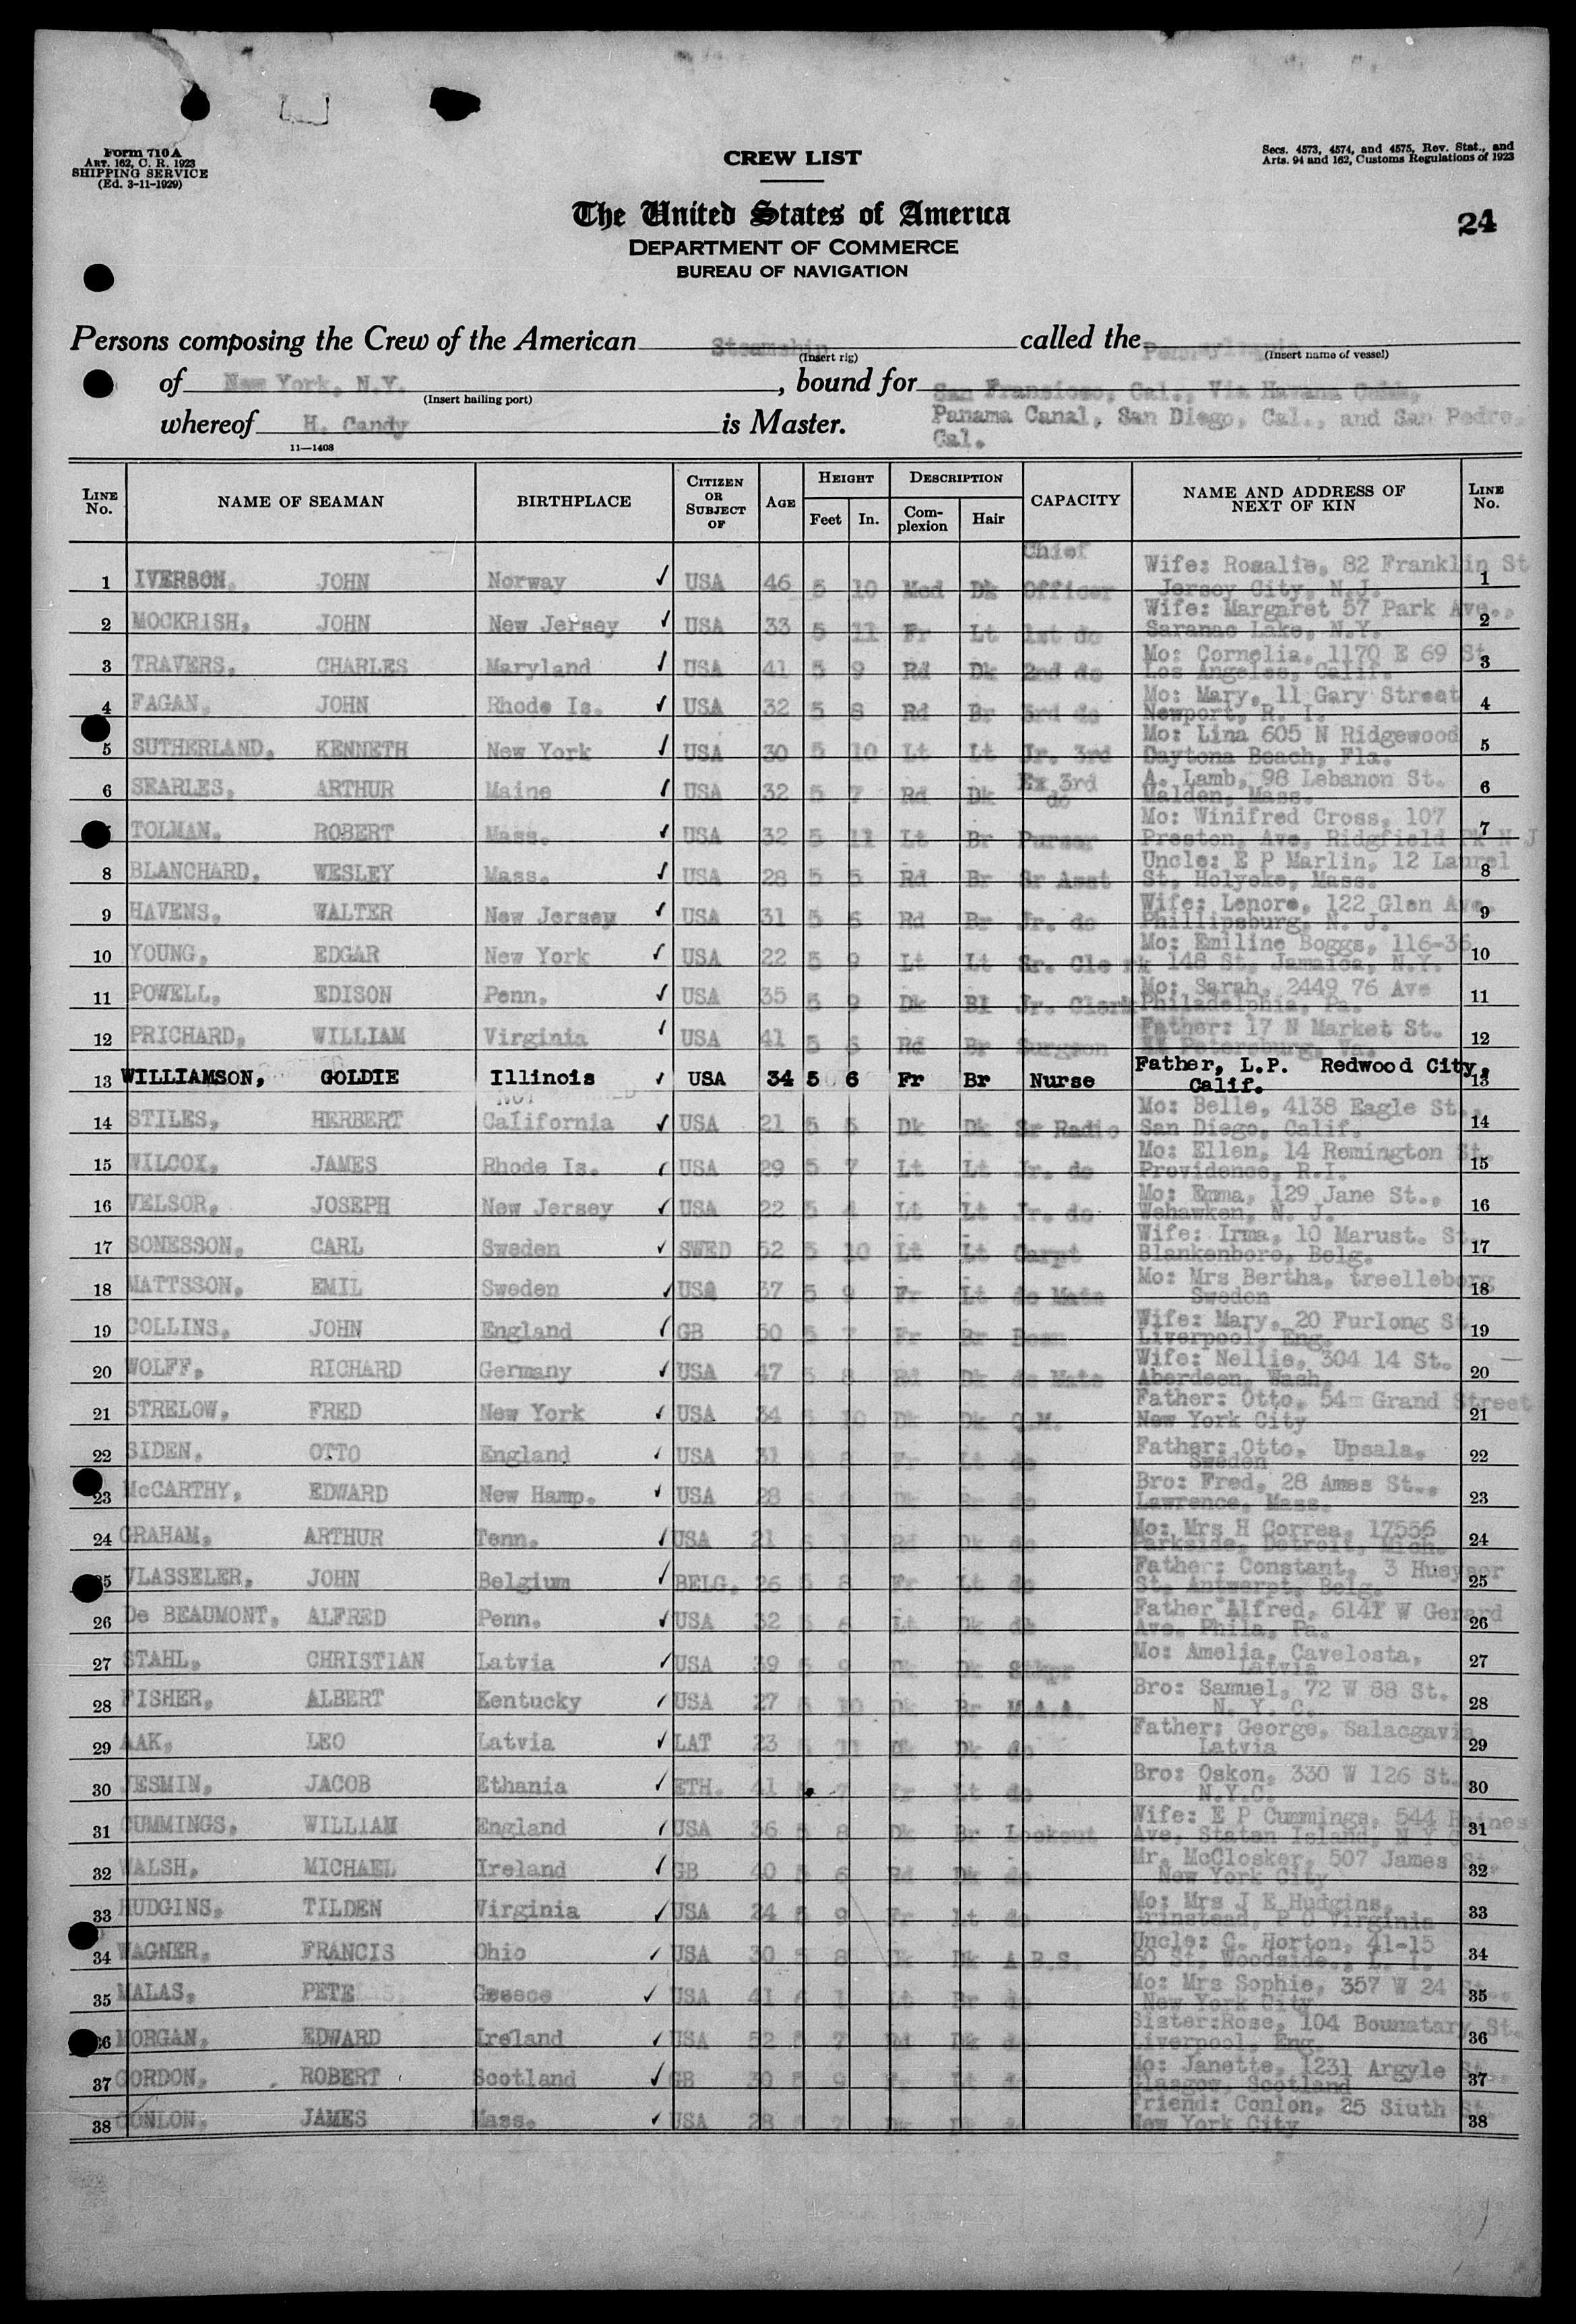 Form 710 A
ART. 162, C. R. 1923
SHIPPING SERVICE
(Ed. 3-11-1929)
CREW LIST
Secs. 4573, 4574, and 4575, Rev. Stat., and
Arts. 94 and 162, Customs Regulations of 1923
The United States of America
24
DEPARTMENT OF COMMERCE
BUREAU OF NAVIGATION
Persons composing the Crew of the American Steamship called the Pennsylvania
(Insert rig) (Insert name of vessel)
of New York, N.Y. , bound for San Fransisco, Cal., Via Havana Cuba,
(Insert hailing port)
whereof H. Candy is Master. Panama Canal, San Diego, Cal., and San Pedro,
Cal.
11—1408
LINE No. NAME OF SEAMAN BIRTHPLACE CITIZEN OR SUBJECT OF AGE HEIGHT Feet In. DESCRIPTION Complexion Hair CAPACITY NAME AND ADDRESS OF NEXT OF KIN LINE No.
1 IVERSON, JOHN Norway ✓ USA 46 5 10 Med Dk Chief Officer Wife: Rosalie, 82 Franklin St 1
Jersey City, N.J.
2 MOCKRISH, JOHN New Jersey ✓ USA 33 5 11 Fr Lt 1st do Wife: Margaret 57 Park Ave., 2
Saranac Lake, N.Y.
3 TRAVERS, CHARLES Maryland ✓ USA 41 5 9 Rd Dk 2nd do Mo: Cornelia, 1170 E 69 St 3
Los Angeles, Calif.
4 FAGAN, JOHN Rhode Is. ✓ USA 32 5 8 Rd Br 3rd do Mo: Mary, 11 Gary Street 4
Newport, R. I.
5 SUTHERLAND, KENNETH New York ✓ USA 30 5 10 Lt Lt Jr. 3rd Mo: Lina 605 N Ridgewood 5
Daytona Beach, Fla.
6 SEARLES, ARTHUR Maine ✓ USA 32 5 7 Rd Dk Ex 3rd do A. Lamb, 98 Lebanon St. 6
Malden, Mass.
TOLMAN, ROBERT Mass. ✓ USA 32 5 11 Lt Br Purser Mo: Winifred Cross, 107 7
Preston, Ave, Ridgfield Pk N J
8 BLANCHARD, WESLEY Mass. ✓ USA 28 5 5 Rd Br Sr Asst Uncle: E P Marlin, 12 Laurel 8
St, Holyoke, Mass.
9 HAVENS, WALTER New Jersey ✓ USA 31 5 6 Rd Br Jr. do Wife: Lenore, 122 Glen Ave. 9
Phillipsburg, N. J.
10 YOUNG, EDGAR New York ✓ USA 22 5 9 Lt Lt Sr. Clerk Mo: Emiline Boggs, 116-36 10
148 St, Jamaica, N.Y.
11 POWELL, EDISON Penn. ✓ USA 35 5 9 Dk Bl Jr. Clerk Mo: Sarah, 2449 76 Ave 11
Philadelphia, Pa.
12 PRICHARD, WILLIAM Virginia ✓ USA 41 5 6 Rd Br Surgeon Father: 17 N Market St. 12
Petersburg, Va.
13 WILLIAMSON, GOLDIE Illinois ✓ USA 34 5 6 Fr Br Nurse Father, L.P. Redwood City, 13
Calif.
14 STILES, HERBERT California ✓ USA 21 5 5 Dk Dk Sr Radio Mo: Belle, 4138 Eagle St., 14
San Diego, Calif.
15 WILCOX, JAMES Rhode Is. ✓ USA 29 5 7 Lt Lt Jr. do Mo: Ellen, 14 Remington St. 15
Providence, R.I.
16 VELSOR, JOSEPH New Jersey ✓ USA 22 5 4 Lt Lt Jr. do Mo: Emma, 129 Jane St., 16
Wehawken, N. J.
17 SONESSON, CARL Sweden ✓ SWED 52 5 10 Lt Lt Carpt Wife: Irma, 10 Marust. St. 17
Blankenboro, Belg.
18 MATTSSON, EMIL Sweden ✓ USA 37 5 9 Fr Lt do Mate Mo: Mrs Bertha, treelleborg 18
Sweden
19 COLLINS, JOHN England ✓ GB 50 5 7 Fr Br Bosn Wife: Mary, 20 Furlong St 19
Liverpool, Eng.
20 WOLFF, RICHARD Germany ✓ USA 47 5 8 Rd Dk do Mate Wife: Nellie, 304 14 St. 20
Aberdeen, Wash.
21 STRELOW, FRED New York ✓ USA 34 5 10 Dk Dk Q.M. Father: Otto, 54 Grand Street 21
New York City
22 SIDEN, OTTO England ✓ USA 31 5 8 Fr Lt do Father: Otto, Upsala, 22
Sweden
23 McCARTHY, EDWARD New Hamp. ✓ USA 28 Dk Br do Bro: Fred, 28 Ames St., 23
Lawrence, Mass.
24 GRAHAM, ARTHUR Tenn. ✓ USA 21 1 Rd Dk do Mo: Mrs H Correa, 17556 24
Parkside, Detroit, Mich.
VLASSELER, JOHN Belgium ✓ BELG. 26 5 8 Fr Lt do Father: Constant, 3 25
St, Antwerpt, Belg.
26 De BEAUMONT, ALFRED Penn. ✓ USA 32 5 6 Lt Dk do Father Alfred, 6141 W Gerard 26
Ave. Phila, Pa.
27 STAHL, CHRISTIAN Latvia ✓ USA 39 5 9 Dk Dk Stkpr Mo: Amelia, Cavelosta, 27
Latvia
28 FISHER, ALBERT Kentucky ✓ USA 27 5 10 Dk Br M.A.A. Bro: Samuel, 72 W 88 St. 28
N. Y. C.
29 AAK, LEO Latvia ✓ LAT 23 5 11 Dk Dk do Father: George, Salacgavia 29
Latvia
30 JESMIN, JACOB Ethania ✓ ETH. 41 7 Fr Lt do Bro: Oskon, 330 W 126 St. 30
N.Y.C.
31 CUMMINGS, WILLIAM England ✓ USA 36 5 8 Dk Br Lookout Wife: E P Cummings, 544 Raines 31
Ave, Staten Island, N Y
32 WALSH, MICHAEL Ireland ✓ GB 40 5 6 Rd Dk do Mr. McClosker, 507 James St. 32
New York City
33 HUDGINS, TILDEN Virginia ✓ USA 24 5 9 Fr Lt do Mo: Mrs J E Hudgins, 33
Grinstead, P O Virginia
34 WAGNER, FRANCIS Ohio ✓ USA 30 5 8 Dk Dk A B.S. Uncle: C. Horton, 41-15 34
60 St, Woodside., L. I.
35 MALAS, PETE Greece ✓ USA 41 1 Lt Br do Mo: Mrs Sophie, 357 W 24 St. 35
New York City
MORGAN, EDWARD Ireland ✓ USA 52 5 7 Dk do Sister:Rose, 104 Bounatary St. 36
Liverpool, Eng.
37 GORDON, ROBERT Scotland ✓ GB 30 5 9 Fr Lt do Mo: Janette, 1231 Argyle St. 37
Glasgow, Scotland
38 CONLON, JAMES Mass. ✓ USA 28 5 7 Dk Dk do Friend: Conlon, 25 Siuth St. 38
New York City